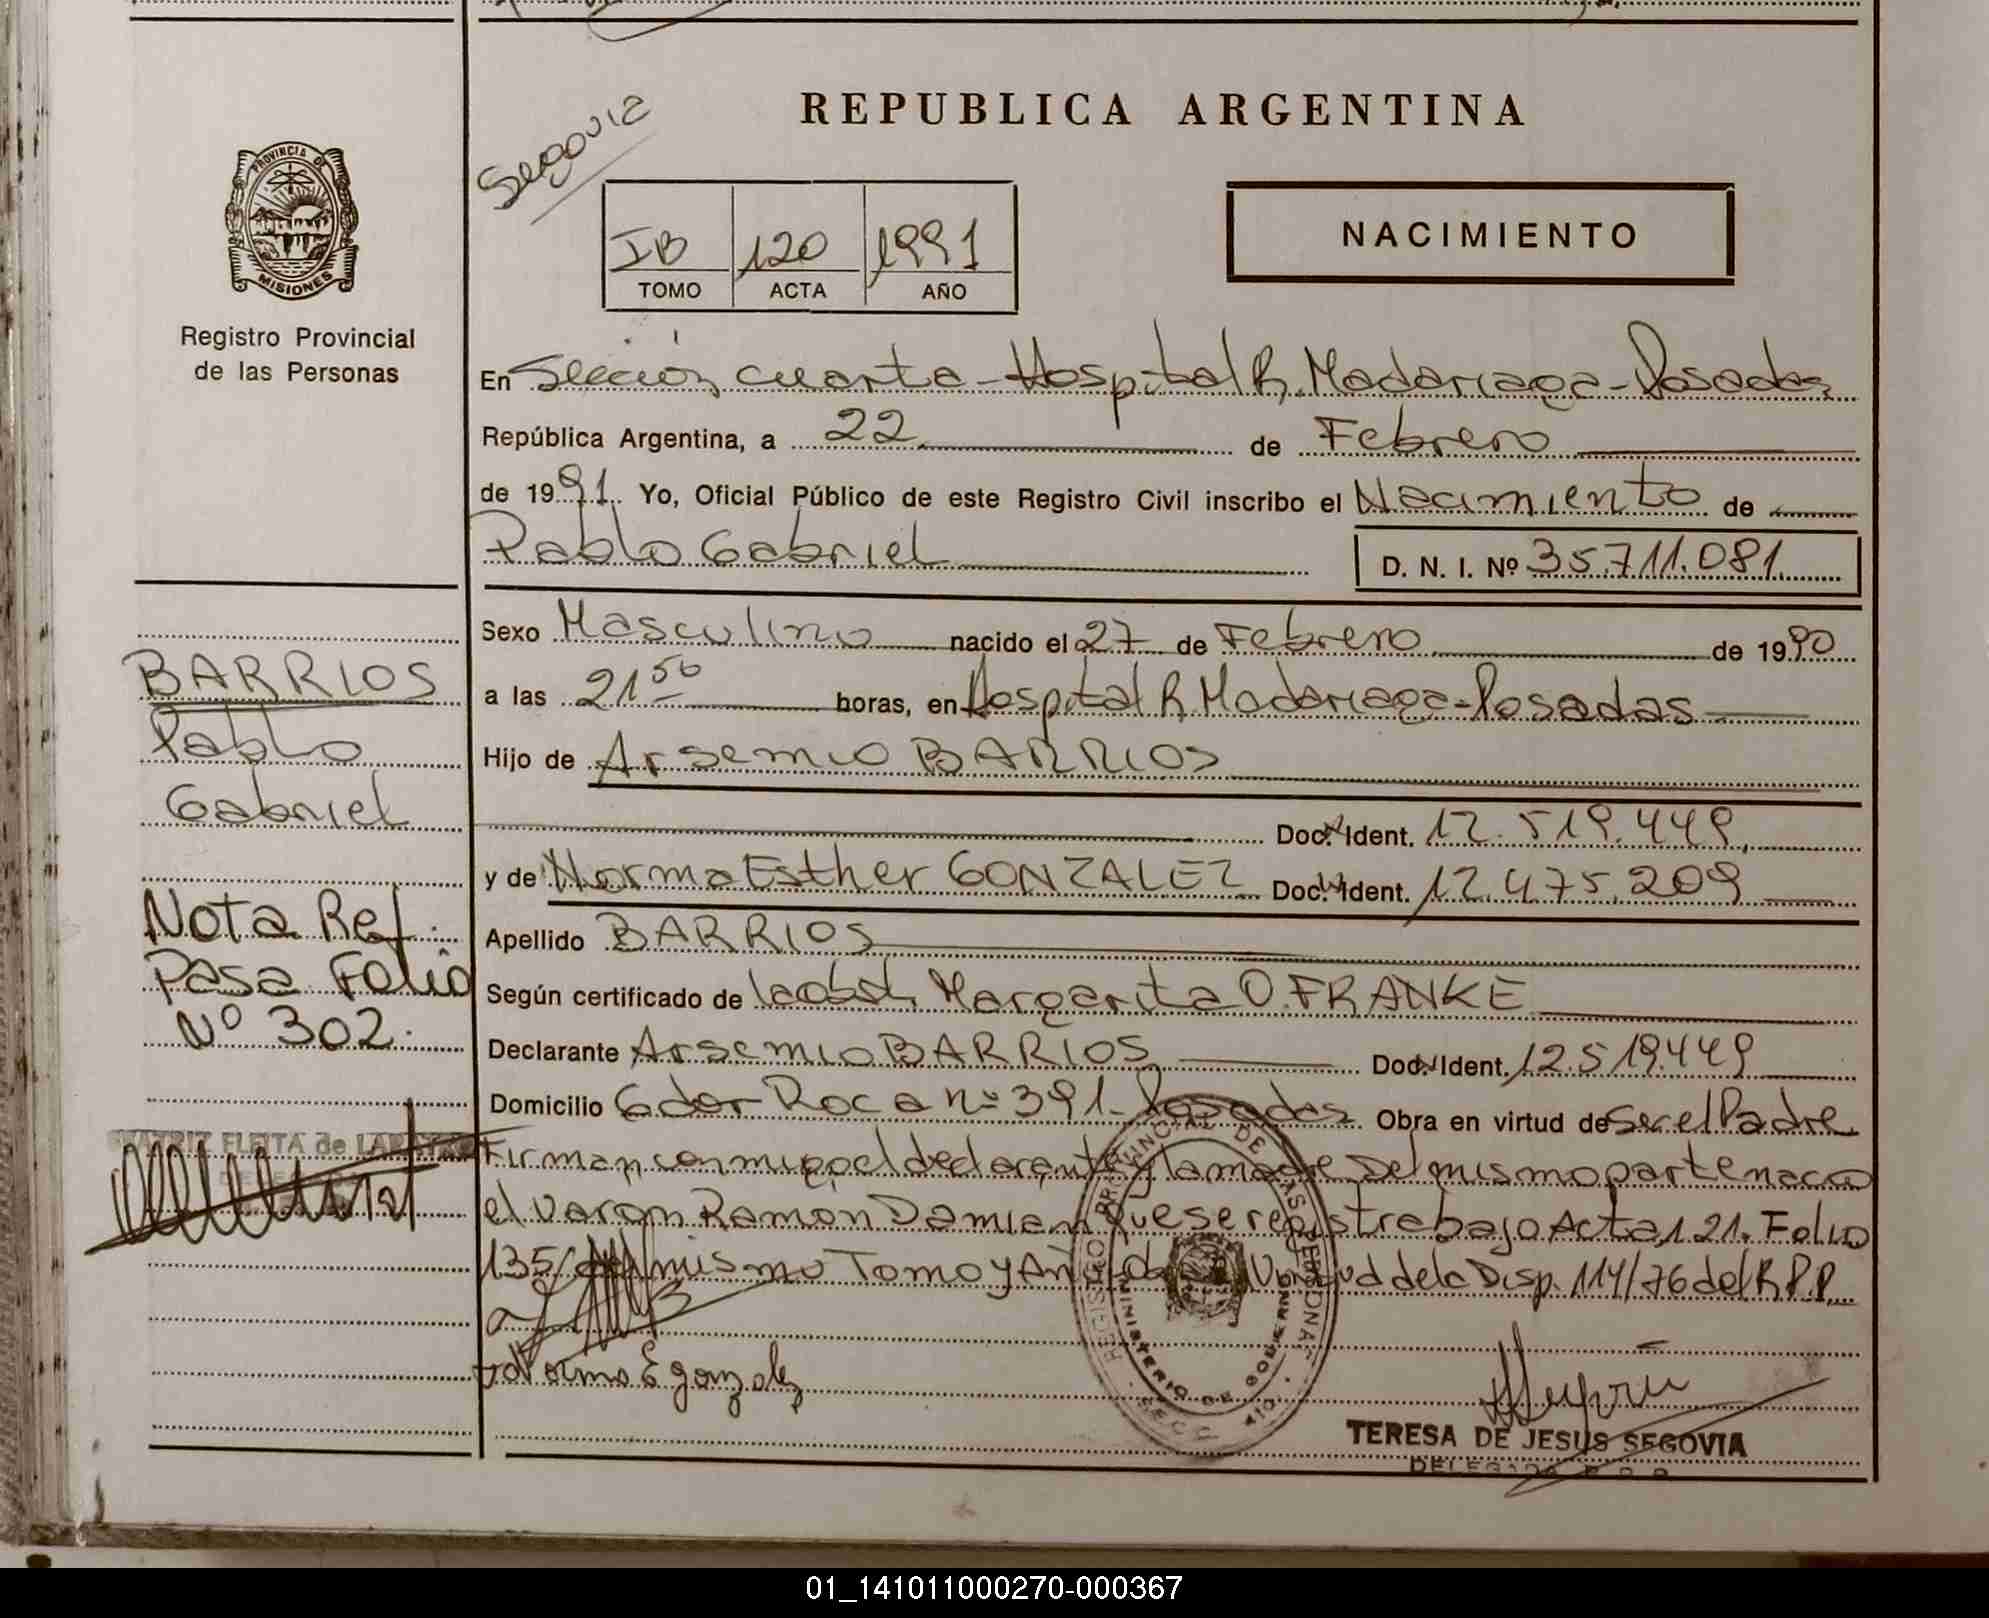 REPUBLICA ARGENTINA
Segovia
PROVINCIA DE
MISIONES
Registro Provincial
de las Personas
IB 120 1991
TOMO ACTA AÑO
NACIMIENTO
En Sección cuarta - Hospital R. Madariaga - Posadas
República Argentina, a 22 de Febrero
de 1991 Yo, Oficial Público de este Registro Civil inscribo el Nacimiento de
Pablo Gabriel D. N. I. Nº 35.711.081
Sexo Masculino nacido el 27 de Febrero de 1990
a las 21 50 horas, en Hospital R Madariaga - Posadas
Hijo de Arsenio BARRIOS
Doc. Ident. 12.519.449
y de Norma Esther GONZALEZ Doc. Ident. 12.475.209
Apellido BARRIOS
Según certificado de Margarita O. FRANKE
Declarante Arsenio BARRIOS Doc. Ident. 12.519.449
Domicilio Gdor Roca nº 391 - Posadas Obra en virtud de Ser el Padre
Firman conmigo el declarante y la madre Del mismo parto nacio
el varon Ramón Damian que se registra bajo Acta 121. Folio
135/ mismo Tomo y Año Virtud de la Disp. 114/76 del R.P.P.
Norma E gonzalez
BARRIOS
Pablo
Gabriel
Nota Ref.
Pasa Folio
Nº 302.
BEATRIZ FLEITA de
REGISTRO PROVINCIAL DE LAS PERSONAS
MINISTERIO DE GOBIERNO
SECC. 4ta
TERESA DE JESUS SEGOVIA
DELEGADA R. P. P.
01_141011000270-000367